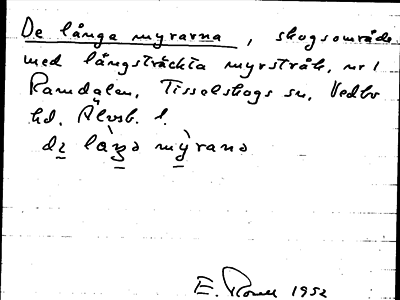 De långa myrarna, skogsområde
med långsträckta myrstråk, nr 1
Ramdalen, Tisselskogs sn, Vedbo
hd. Älvsb. l.
de låŋa myrana
E. 1952